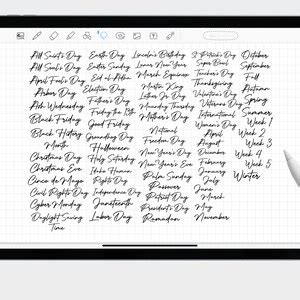 All Saint's Day
All Soul's Day
April Fool's Day
Arbor Day
Ash Wednesday
Black Friday
Black History
Month
Christmas Day
Christmas Eve
Cinco de Mayo
Civil Rights Day
Cyber Monday
Daylight Saving
Time
Earth Day
Easter Sunday
Eid al Adha
Election Day
Father's Day
Friday the 13th
Good Friday
Groundhog Day
Halloween
Holy Saturday
Human
Rights Day
Independence Day
Juneteenth
Labor Day
Lincoln's Birthday
Lunar New Year
March Equinox
Mother's Day
National
Freedom Day
New Year's Day
New Year's Eve
Palm Sunday
Passover
Patriot Day
President's Day
Ramadan
St Patrick's Day
Super Bowl
Teacher's Day
Thanksgiving
Valentine's Day
Veterans Day
International
Women's Day
April
August
December
February
January
July
June
March
May
November
October
September
Fall
Autumn
Spring
Summer
Week 1
Week 2
Week 3
Week 4
Week 5
Winter